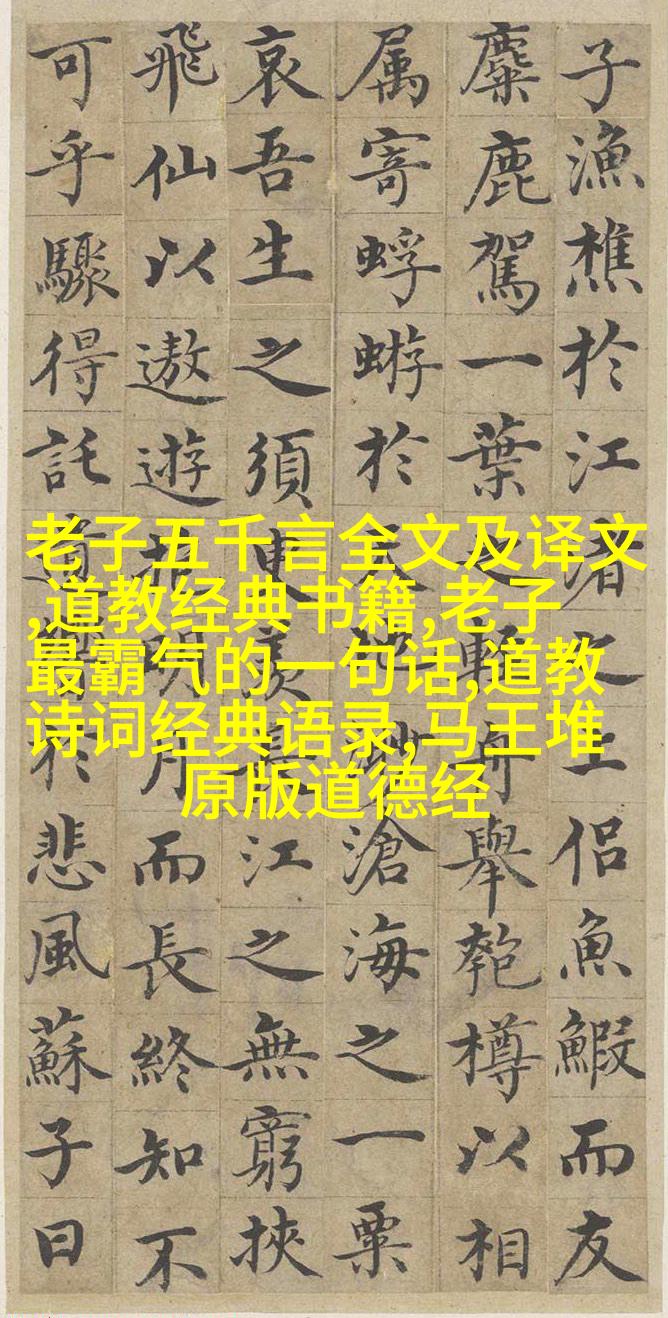 子漁樵於江渚之上侣魚鰕而友
麋鹿駕一葉之輕舟舉匏樽以相
属寄蜉蝣於天地渺滄海之一粟
哀吾生之須臾羨長江之無窮挾
飛仙以遨遊抱明月而長終知不
可乎驟得託遺響於悲風蘇子曰
老子五千言全文及译文
,道教经典书籍,老子
最霸气的一句话,道教
诗词经典语录,马王堆
原版道德经